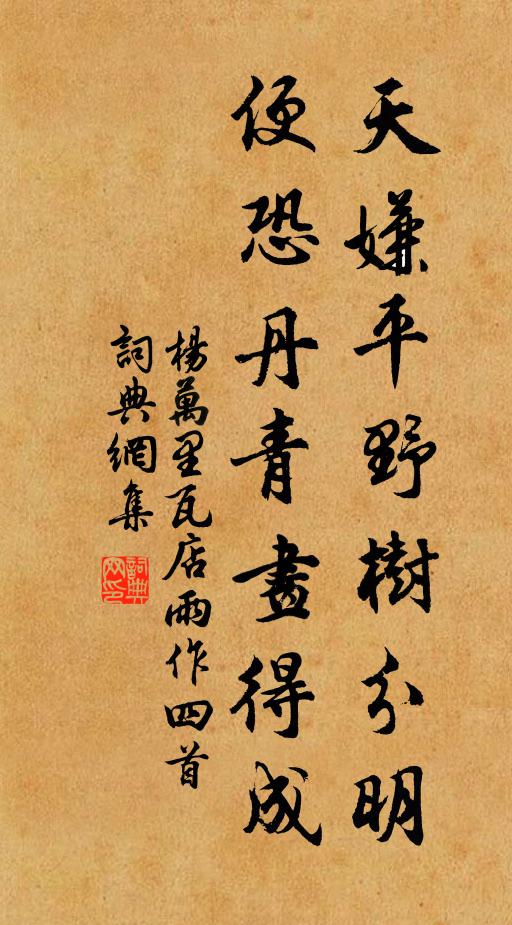 天嫌平野樹分明
便恐丹青畫得成
楊萬里瓦店雨作四首
詞典網集
詞典網印